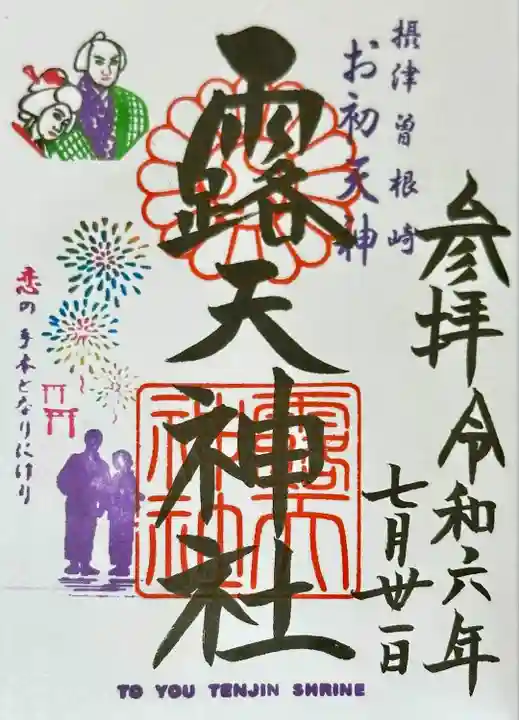 参拝 令和六年
七月卅一日
摂津曽根崎
お初天神
露天神社
露天神社
恋の手本となりにけり
TO YOU TENJIN SHRINE